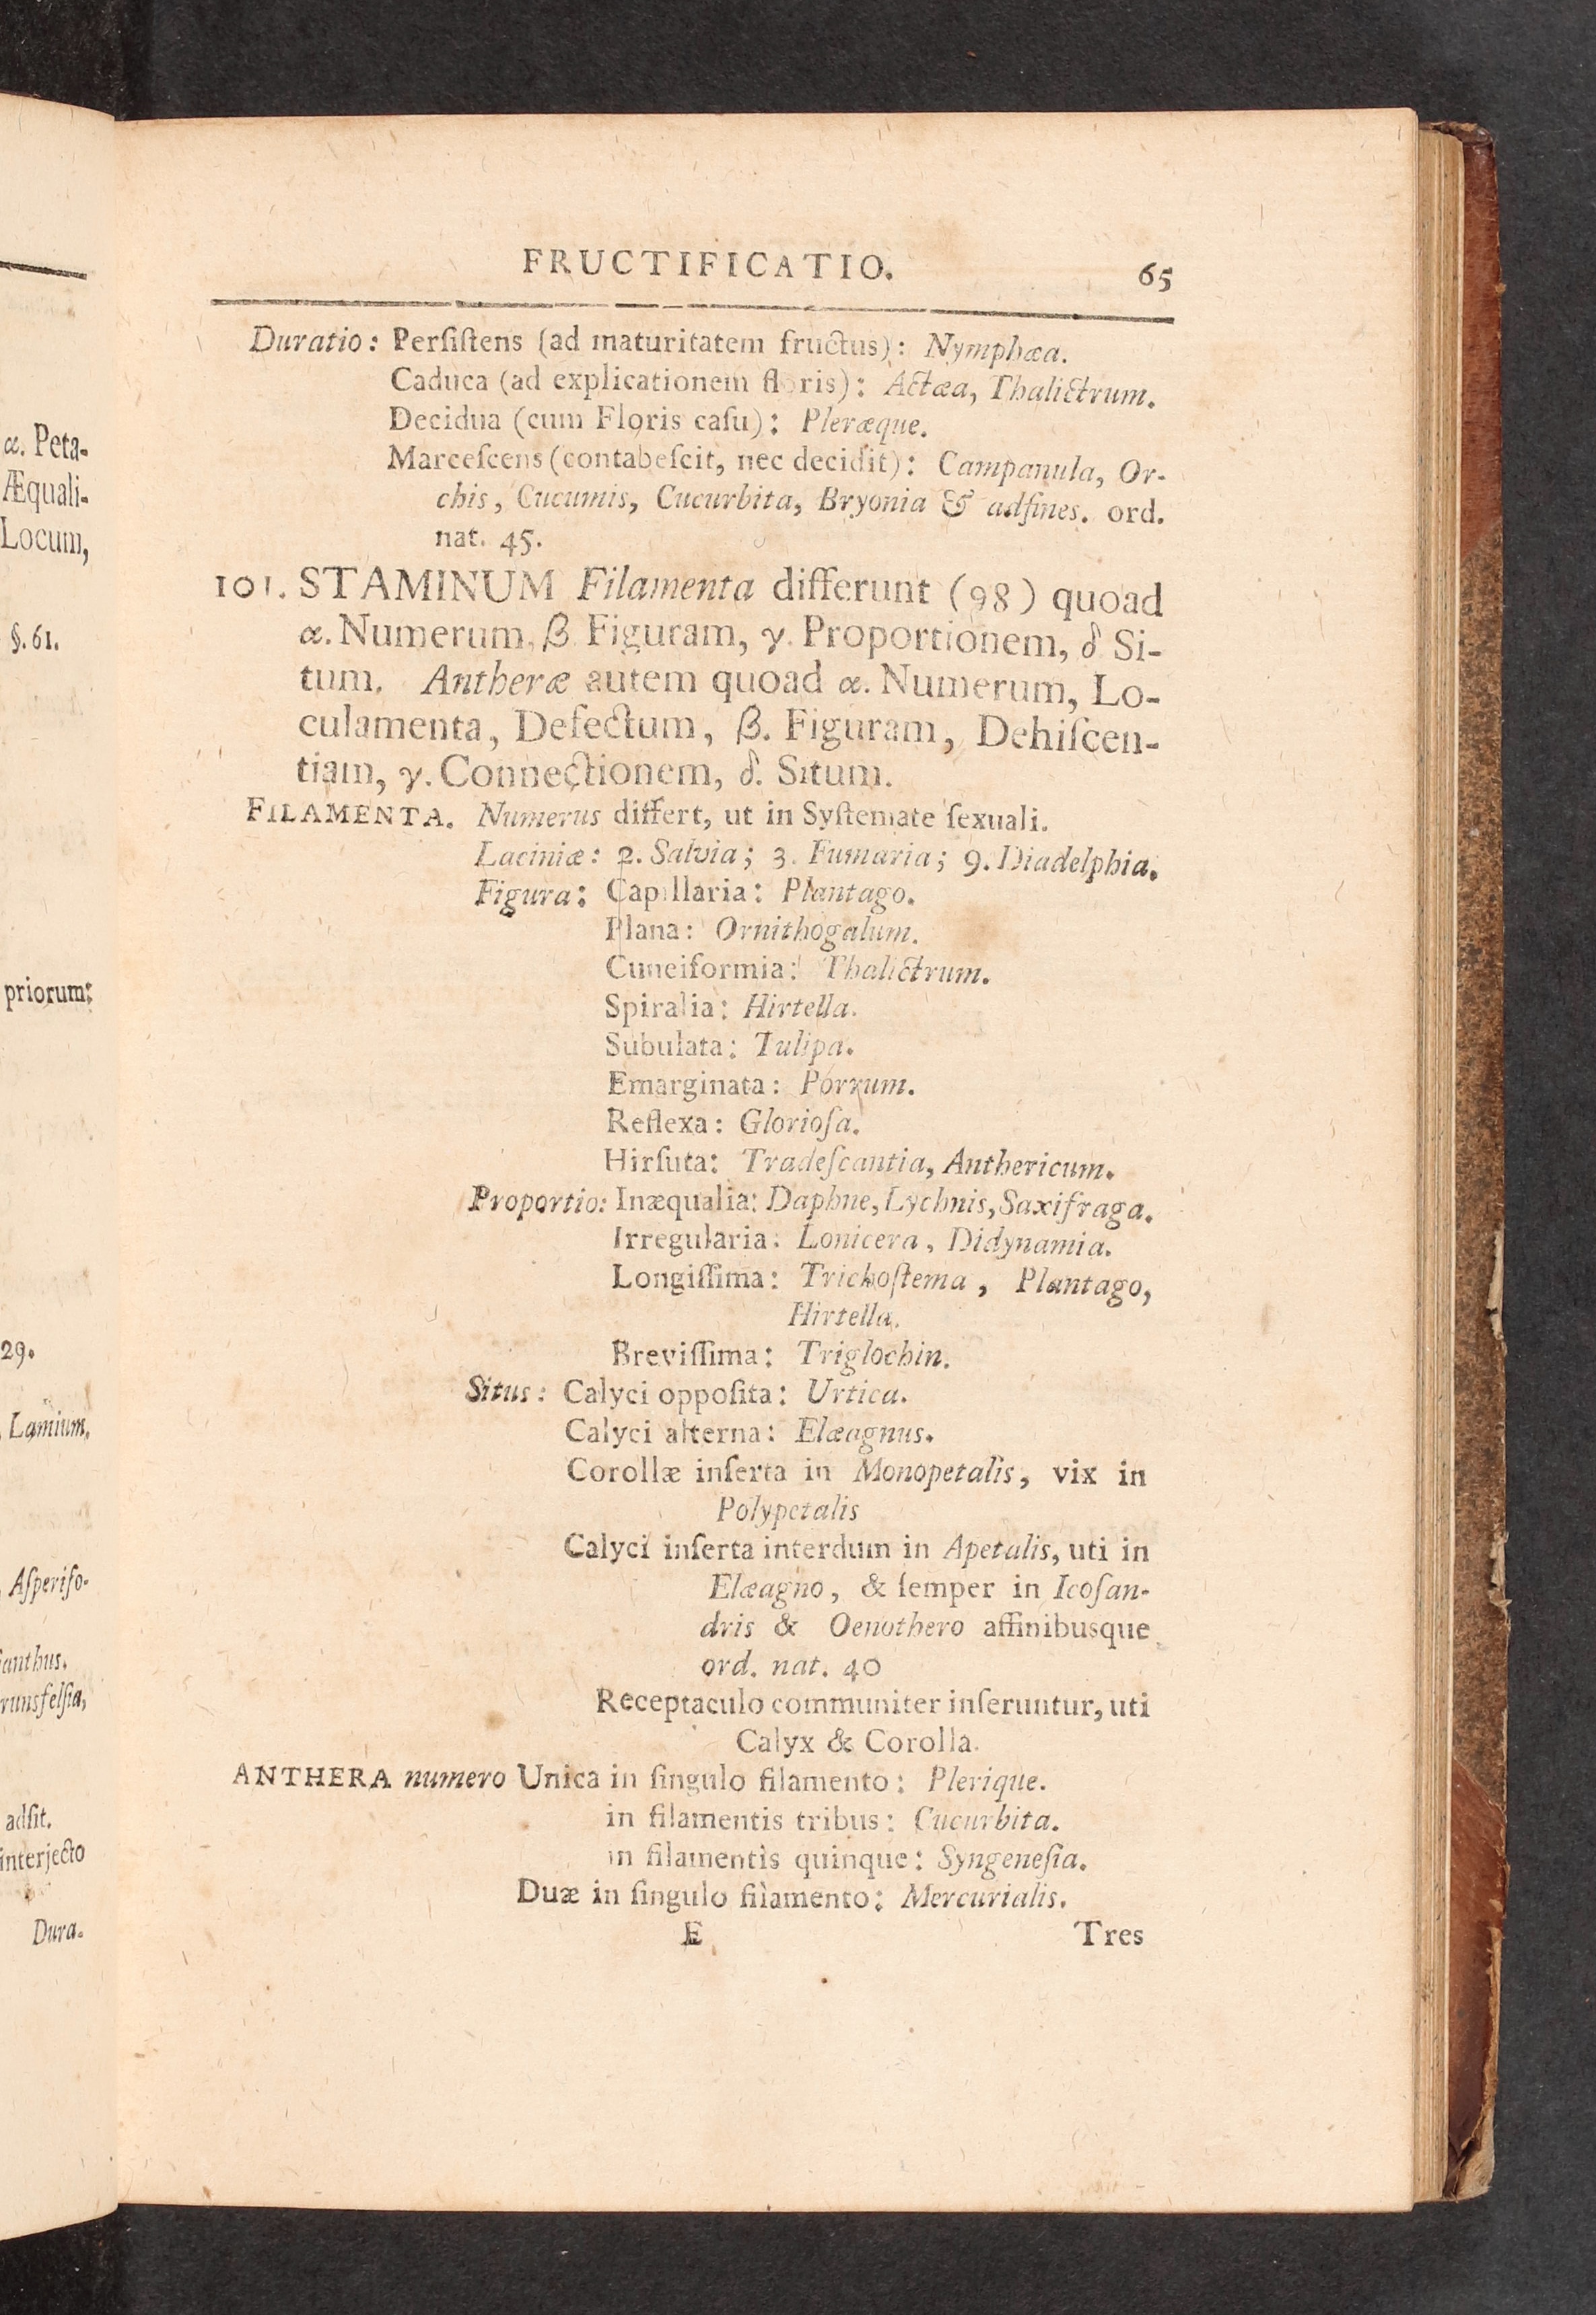 α. Peta-
Æquali-
Locum,
§. 61.
priorum:
29.
Lamium,
Aſperifo-
ſanthus.
runsfelſia,
adſit.
interjecto
Dura-
FRUCTIFICATIO. 65
Duratio: Perſiſtens (ad maturitatem fructus): Nymphæa.
Caduca (ad explicationem floris): Actæa, Thalictrum.
Decidua (cum Floris caſu): Pleræque.
Marceſcens (contabeſcit, nec decidit): Campanula, Or-
chis, Cucumis, Cucurbita, Bryonia & adfines. ord.
nat. 45.
101. STAMINUM Filamenta differunt (98) quoad
α. Numerum, β Figuram, γ. Proportionem, δ Si-
tum. Antheræ autem quoad α. Numerum, Lo-
culamenta, Defectum, β. Figuram, Dehiſcen-
tiam, γ. Connectionem, δ. Situm.
FILAMENTA. Numerus differt, ut in Syſtemate ſexuali.
Laciniæ: 2. Salvia; 3. Fumaria; 9. Diadelphia.
Figura: Capillaria: Plantago.
Plana: Ornithogalum.
Cuneiformia: Thalictrum.
Spiralia: Hirtella.
Subulata: Tulipa.
Emarginata: Porrum.
Reflexa: Glorioſa.
Hirſuta: Tradeſcantia, Anthericum.
Proportio: Inæqualia: Daphne, Lychnis, Saxifraga.
Irregularia: Lonicera, Didynamia.
Longiſſima: Trichoſtema, Plantago,
Hirtella.
Breviſſima: Triglochin.
Situs: Calyci oppoſita: Urtica.
Calyci alterna: Elæagnus.
Corollæ inſerta in Monopetalis, vix in
Polypetalis
Calyci inſerta interdum in Apetalis, uti in
Elæagno, & ſemper in Icoſan-
dris & Oenothero affinibusque
ord. nat. 40
Receptaculo communiter inſeruntur, uti
Calyx & Corolla.
ANTHERA numero Unica in ſingulo filamento: Plerique.
in filamentis tribus: Cucurbita.
in filamentis quinque: Syngeneſia.
Duæ in ſingulo filamento: Mercurialis.
E Tres